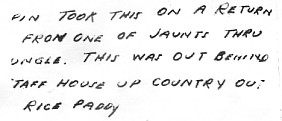 FIN TOOK THIS ON A RETURN
FROM ONE OF JAUNTS THRU
UNGLE. THIS WAS OUT BEHIND
TAFF HOUSE UP COUNTRY OUT
RICE PADDY